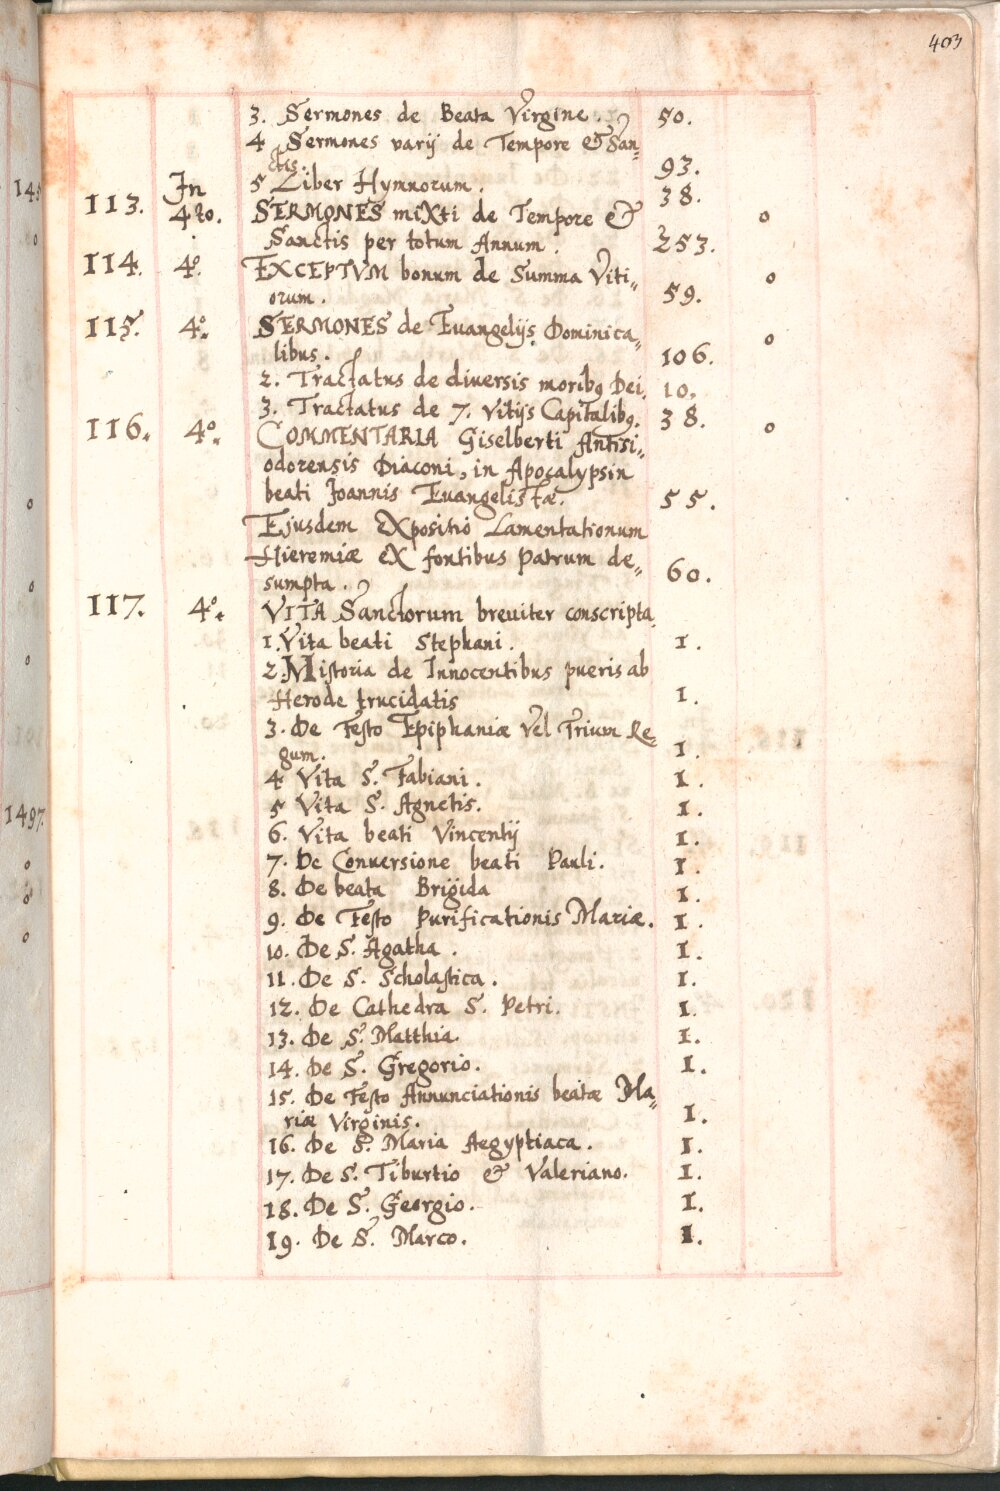 403
3. Sermones de Beata Virgine. 50.
4 Sermones varij de Tempore & San„
ctis. 93.
5 Liber Hymnorum. 38.
113. In 4to. SERMONES miXti de Tempore & o
Sanctis per totum Annum. 253.
114. 4o. EXCEPTVM bonum de Summa Viti„ o
orum. 59.
115. 4o. SERMONES de Euangelijs Dominica„ o
libus. 106.
2. Tractatus de diuersis moribꝰ Dei 10.
3. Tractatus de 7. Vitijs Capitalibꝰ. 38.
116. 4o. COMMENTARIA Giselberti Antisi„ o
odorensis Diaconi, in Apocalypsin
beati Joannis Euangelistæ. 55.
Ejusdem eXpositio Lamentationum
Hieremiæ eX fontibus Patrum de„
sumpta. 60.
117. 4o. VITA Sanctorum breuiter conscripta
1. Vita beati Stephani. 1.
2. Mistoria de Innocentibus pueris ab
Herode trucidatis 1.
3. De Festo Epiphaniæ Vel Trium Re„
gum. 1.
4 Vita S. Fabiani. 1.
5 Vita S. Agnetis. 1.
6. Vita beati Vincentij 1.
7. De Conuersione beati Pauli. 1.
8. De beata Brigida 1.
9. De Festo Purificationis Mariæ. 1.
10. De S. Agatha. 1.
11. De S. Scholastica. 1.
12. De Cathedra S. Petri. 1.
13. De S. Matthia. 1.
14. De S. Gregorio. 1.
15. De Festo Annunciationis beatæ Ma„
riæ Virginis. 1.
16. De S. Maria Aegyptiaca. 1.
17. De S. Tiburtio & Valeriano. 1.
18. De S. Georgio. 1.
19. De S. Marco. 1.
1497.